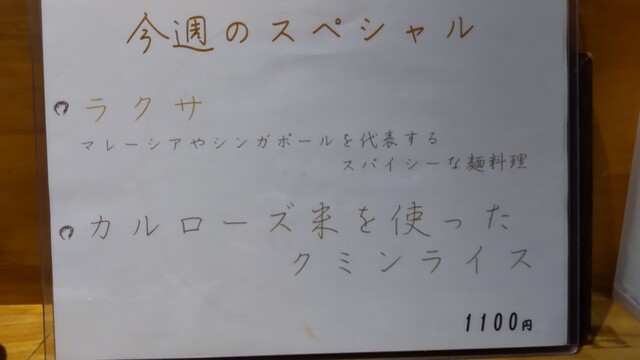 今週のスペシャル
ラクサ
マレーシアやシンガポールを代表する
スパイシーな麺料理
カルローズ米を使った
クミンライス
1100円